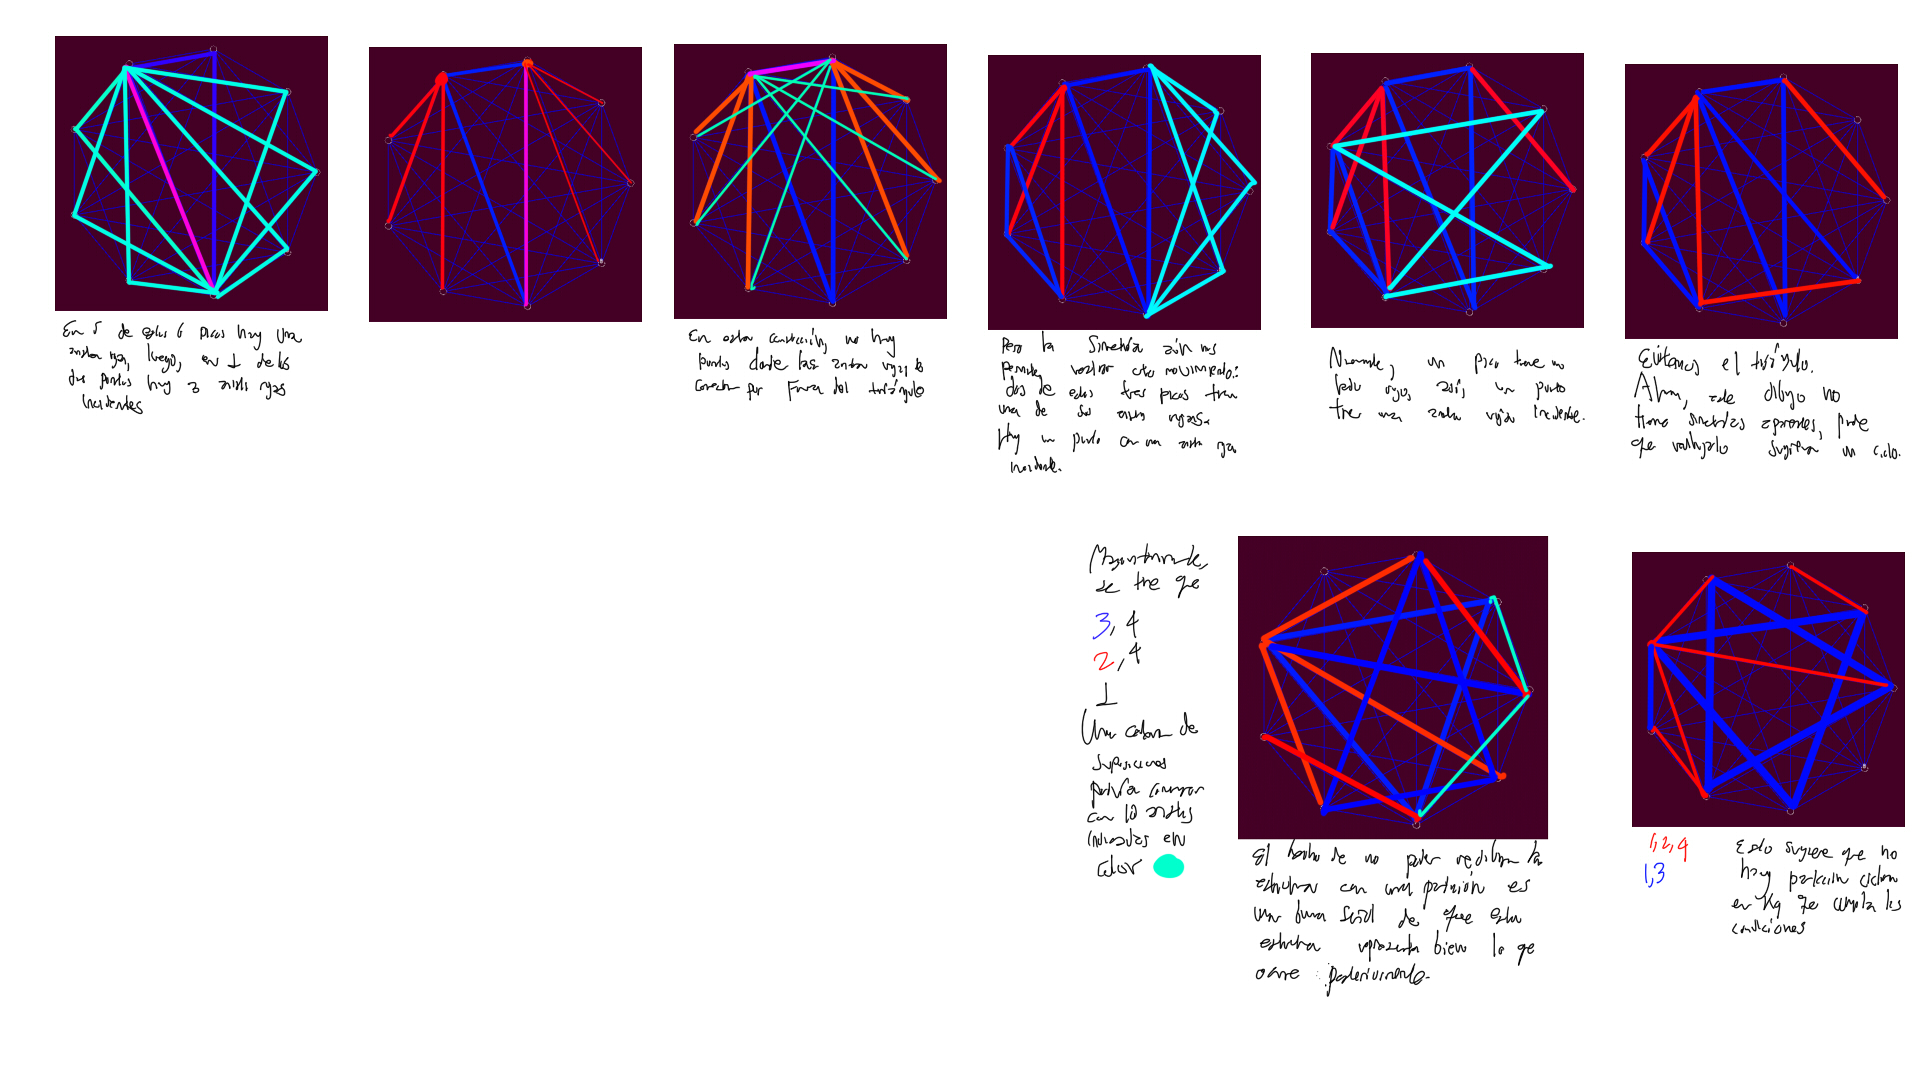 En 5 de estos 6 picos hay una
arista roja, luego, en 1 de los
dos puntos hay 3 aristas rojas
incidentes
En esta construcción, no hay
puntos donde las aristas rojas se
conecten por fuera del triángulo
Pero la simetría aún nos
permite realizar otro movimiento:
dos de estos tres picos tienen
una de sus aristas rojas.
Hay un punto con una arista roja
incidente.
Nuevamente, un pico tiene un
lado rojo, así, un punto
tiene una arista roja incidente.
Evitamos el triángulo.
Ahora, este dibujo no
tiene simetrías aparentes, puede
que realizarlo sugiera un ciclo.
se tiene que
3, 4
2, 4
1
Una cadena de
suposiciones
podría comenzar
con 10 aristas
en
color
El hecho de no poder redibujar la
estructura con una partición es
una buena señal de que esta
estructura representa bien lo que
ocurre posteriormente.
1, 2, 4
1, 3
Esto sugiere que no
hay partición
en K9 que cumpla las
condiciones